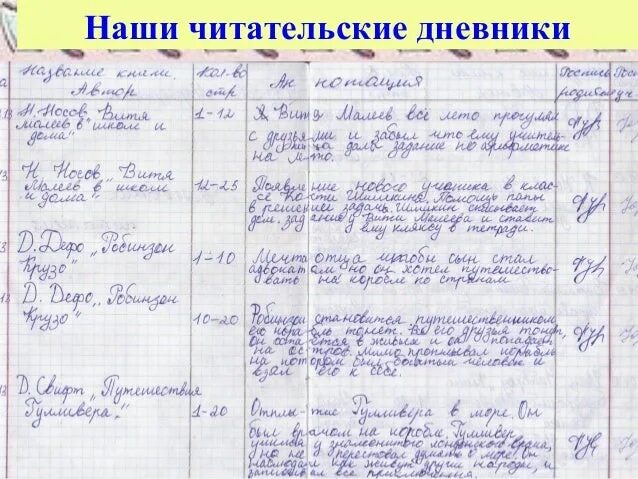 Наши читательские дневники
Название книги. Кол-во Ан нотация Роспись
Автор стр. родителей уч.
Н. Носов „Витя 1-12 Витя Малеев всё лето прогулял
Малеев в школе и с друзьями и забыл что ему учитель-
дома" ница дала задание по арифметике
на лето.
Н. Носов „Витя 12-25 Появление нового ученика в клас-
Малеев в школе се Кости Шишкина. Помощь папы
и дома" в решение задач. Шишкин списывает
дом. задание у Вити Малеева и ставит
ему кляксу в тетради.
Д. Дефо „Робинзон 1-10 Мечта отца чтобы сын стал
Крузо" адвокатом но он хотел путешество-
вать на корабле по странам
Д. Дефо „Робинзон 10-20 Робинзон становится путешественником
Крузо" его корабль тонет. Все его друзья тонут,
он остаётся в живых и он попадает
на остров. Мимо проплывал корабль
на котором был богатый человек и
взял его к себе.
Д. Свифт „Путешествия 1-20 Отплытие Гулливера в море. Он
Гулливера" был врачом на корабле. Гулливер
учился у знаменитого лондонского врача,
но не перестовал думать о море. Он
наблюдал как живут другие народы, и
записывал все приключения.